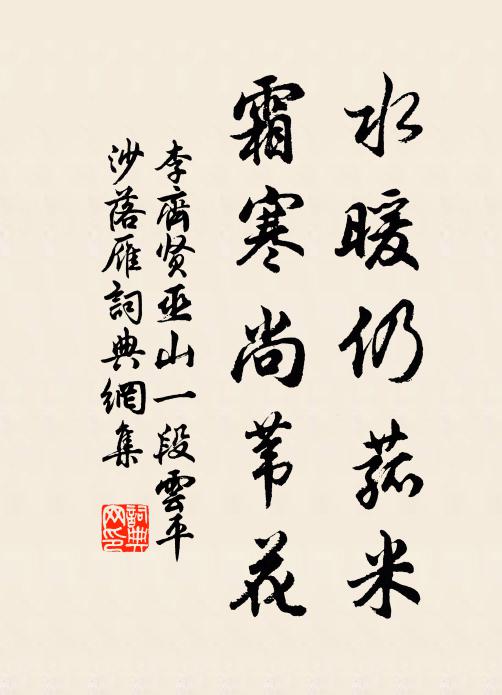 水暖仍菰米
霜寒尚苇花
李齊贤巫山一段雲平
沙落雁詞典網集
詞典网印